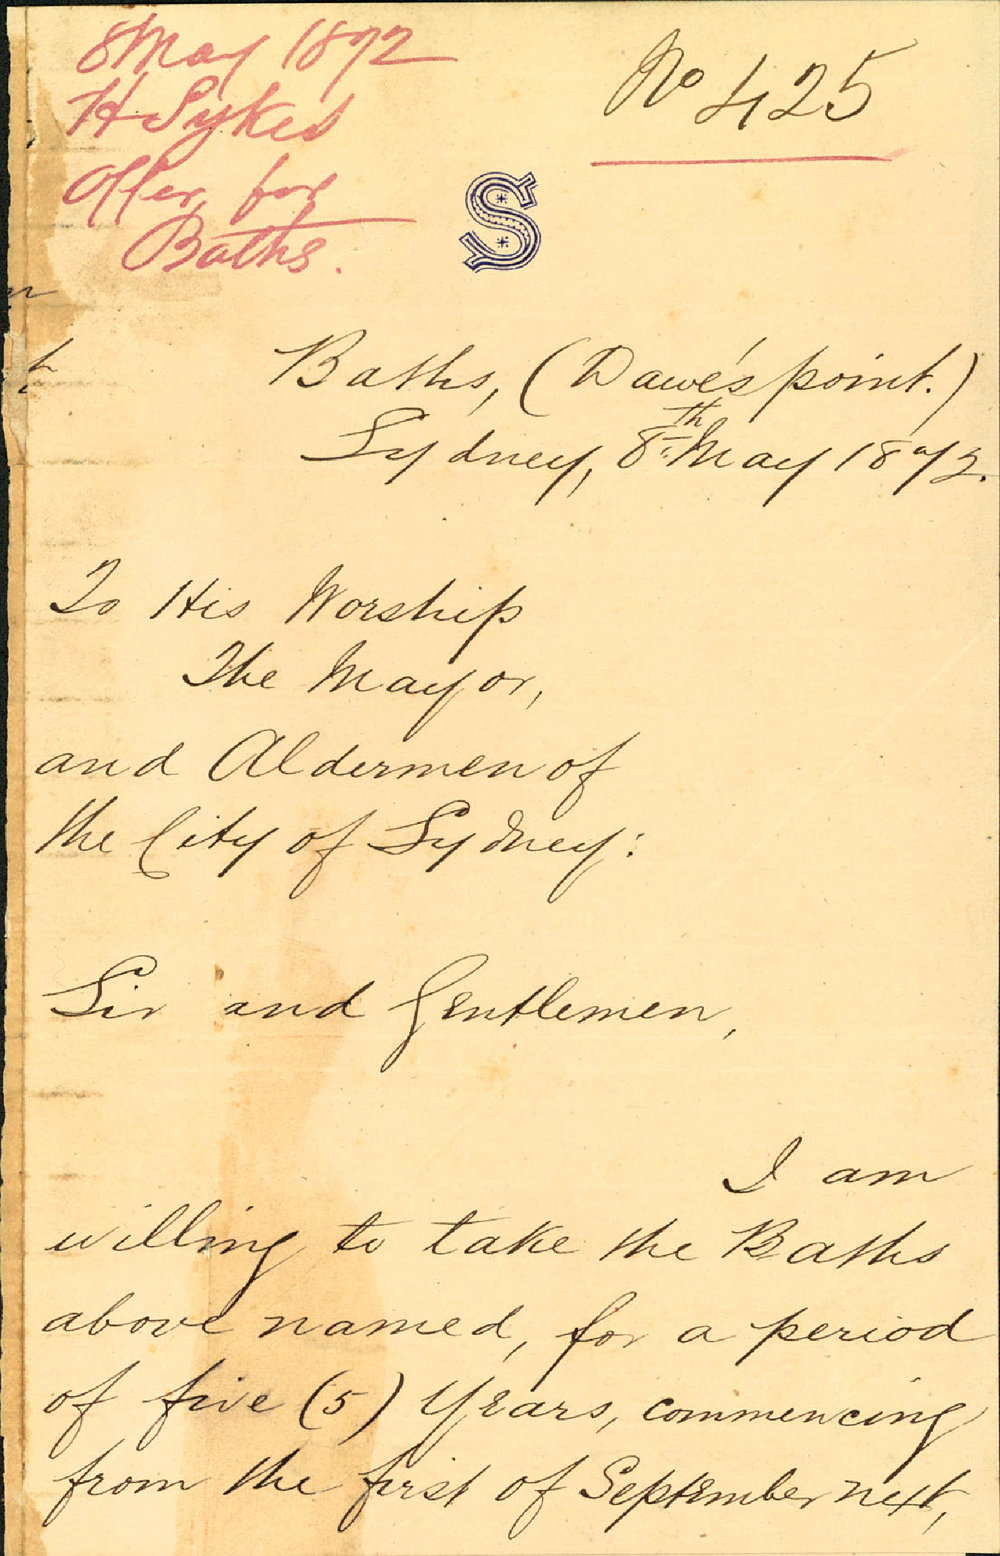 8 May 1872
H Sykes
Offer for
Baths.
No 425
S
Baths, (Dawe's point.)
Sydney, 8th May 1872.
To His Worship
The Mayor,
and Aldermen of
the City of Sydney:
Sir and Gentlemen,
I am
willing to take the Baths
above named, for a period
of five (5) Years, commencing
from the first of September next,